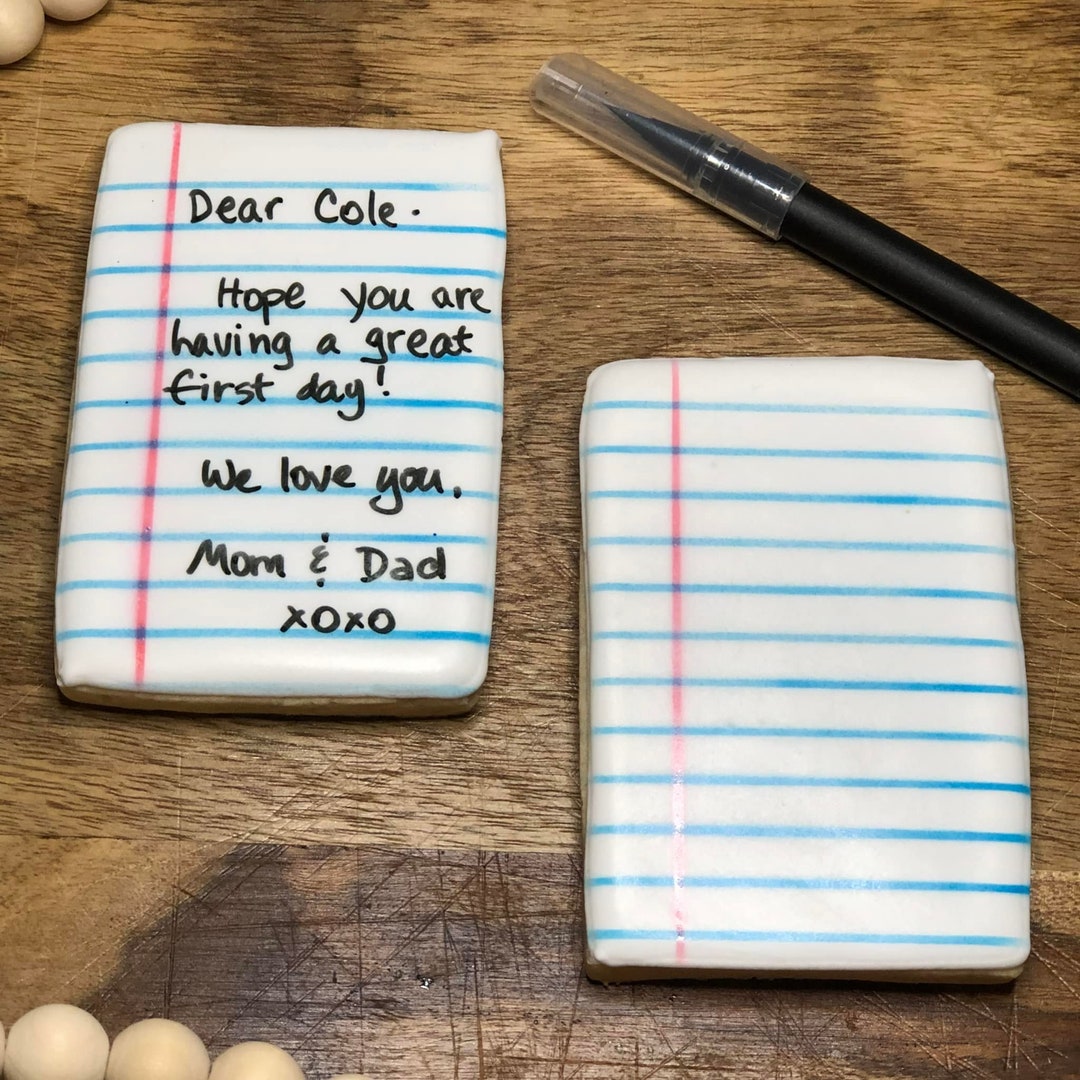 Dear Cole.
Hope you are
having a great
first day!
We love you,
Mom & Dad
xoxo